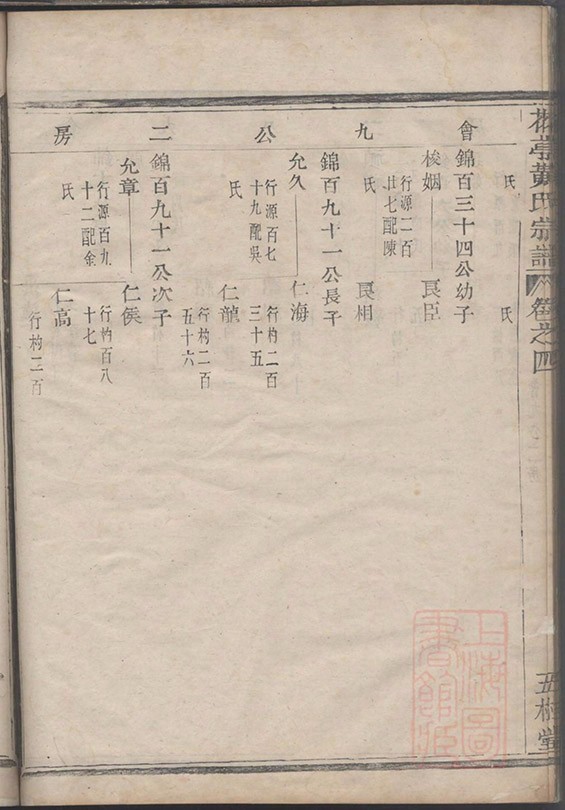 氏
氏
會九公二房
錦百三十四公幼子
梭姻
良臣
行源二百
廿七配陳
氏
良相
錦百九十一公長子
允久
仁海
行源百七
十九配吳
氏
行杓二百
三十五
仁龍
行杓二百
五十六
錦百九十一公次子
允章
仁侯
行源百九
十二配金
氏
行杓百八
十七
仁高
行杓二百
黃氏宗譜
卷之四
上海圖
書館藏